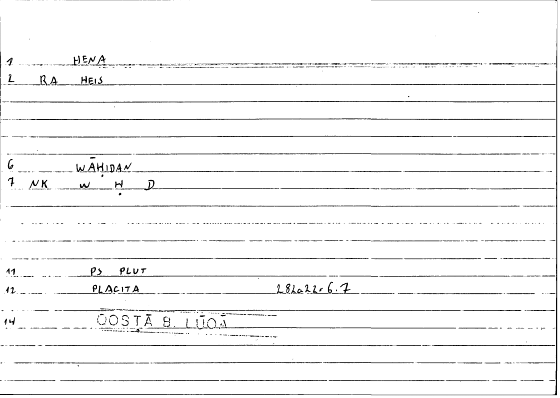 1 HENA
2 RA HEIS
6 WĀḤIDAN
7 NK W Ḥ D
11 PS PLUT
12 PLACITA 282a22r6.7
14 QOSṬĀ B. LŪQĀ